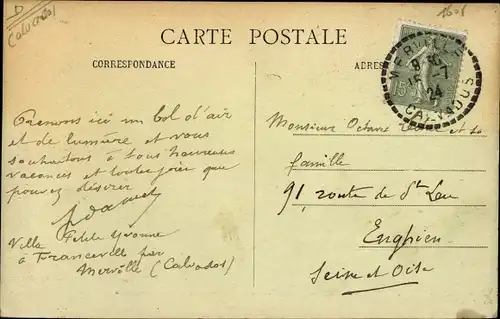 D
(Calvados)
1608
CARTE POSTALE
CORRESPONDANCE
ADRES
MERVILLE
15 -7
24
CALVADOS
15
Prenons ici un bol d'air
et de lumière et vous
souhaitons à tous heureuses
vacances et toute joie que
pouvez désirer
Villa Petite Yvonne
à Franceville par
Merville (Calvados)
Monsieur Octave et sa
famille
91, route de St Leu
Enghien
Seine et Oise